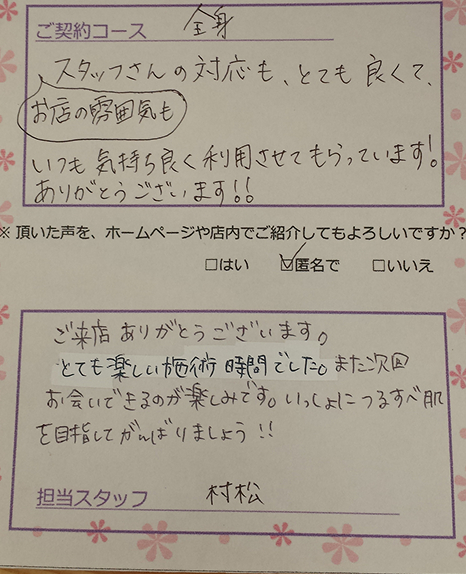 ご契約コース 全身
スタッフさんの対応も、とても良くて、
お店の雰囲気も
いつも気持ち良く利用させてもらっています!
ありがとうございます!!
※頂いた声を、ホームページや店内でご紹介してもよろしいですか?
□はい ☑匿名で □いいえ
ご来店ありがとうございます。
とても楽しい施術時間でした。また次回
お会いできるのが楽しみです。いっしょにつるすべ肌
を目指してがんばりましょう!!
担当スタッフ 村松